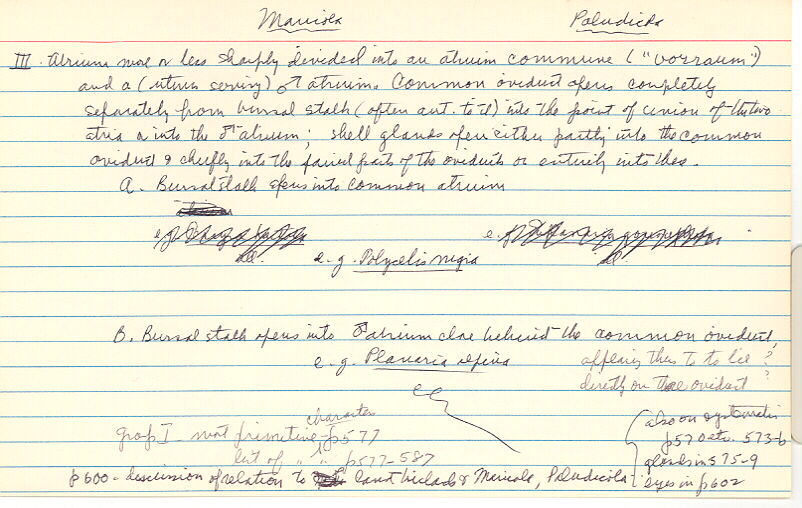 Maricola Paludicola
III. Atrium more or less sharply divided into an atrium commune ("vorraum")
and a (uterus serving) ♂ atrium. Common oviduct opens completely
separately from bursal stalk (often ant. to it) into the point of union of the two
atria or into the ♂ atrium; shell glands open either partly into the common
oviduct & chiefly into the paired parts of the oviducts or entirely into these.
A. Bursal stalk opens into common atrium
e.g.
e.g. Polycelis nigra
B. Bursal stalk opens into ♂ atrium close behind the common oviduct,
e.g. Planaria alpina appears thus to to lie ?
directly on the oviduct ?
character
group I most primitive - p577
list of " " p577-587
also on systematics
p570 etc. 573-6
glands in 575-9
eyes in p602
p600 - discussion of relation to land triclads & Maricola, Paludicola